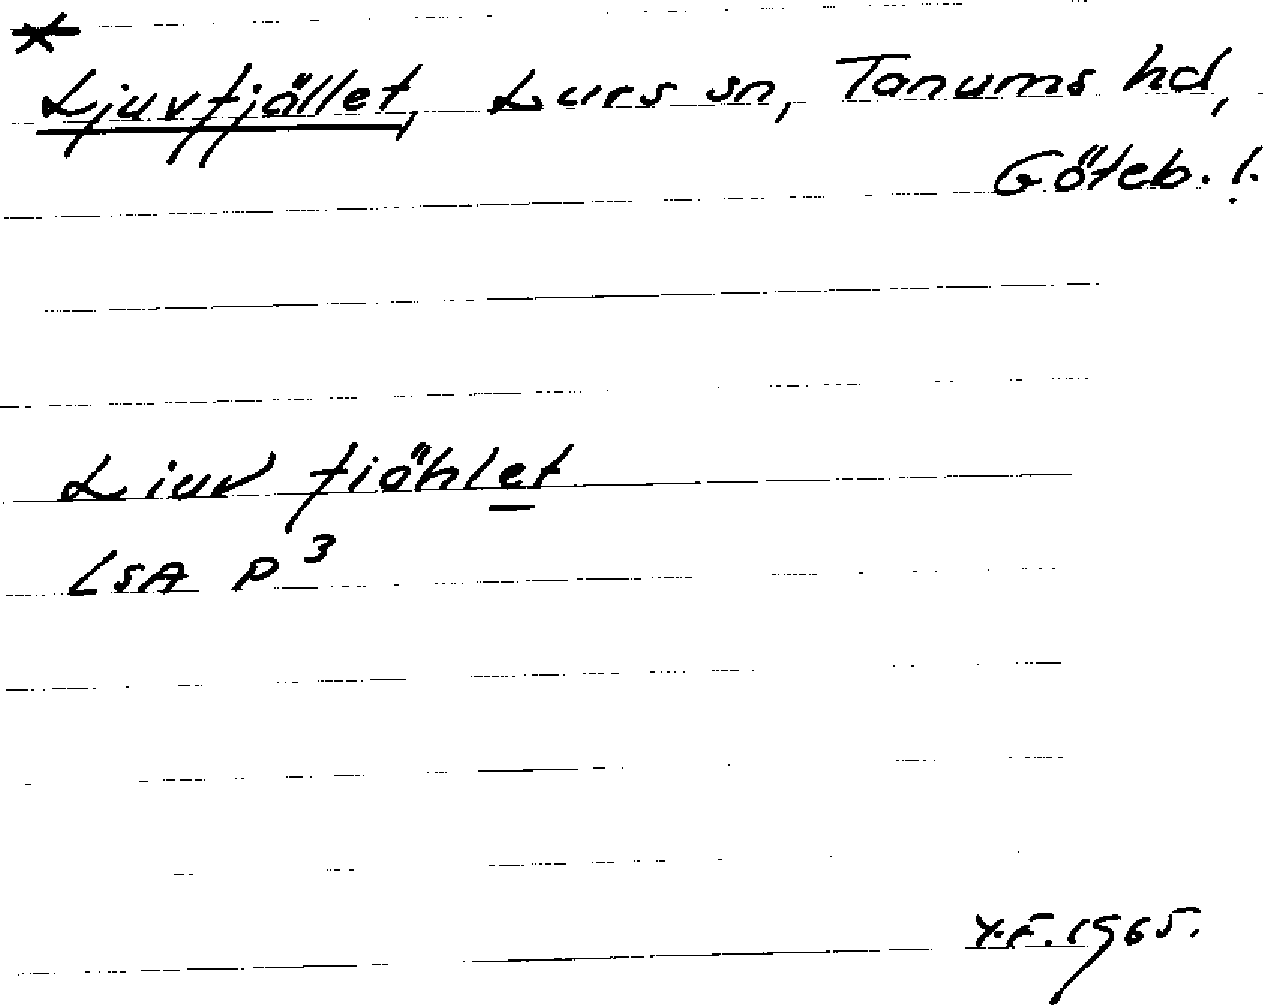 *
Ljuvfjället, Lurs sn, Tanums hd,
Göteb. l.
Liuv fiählet
LSA P³
Y.F. 1965.